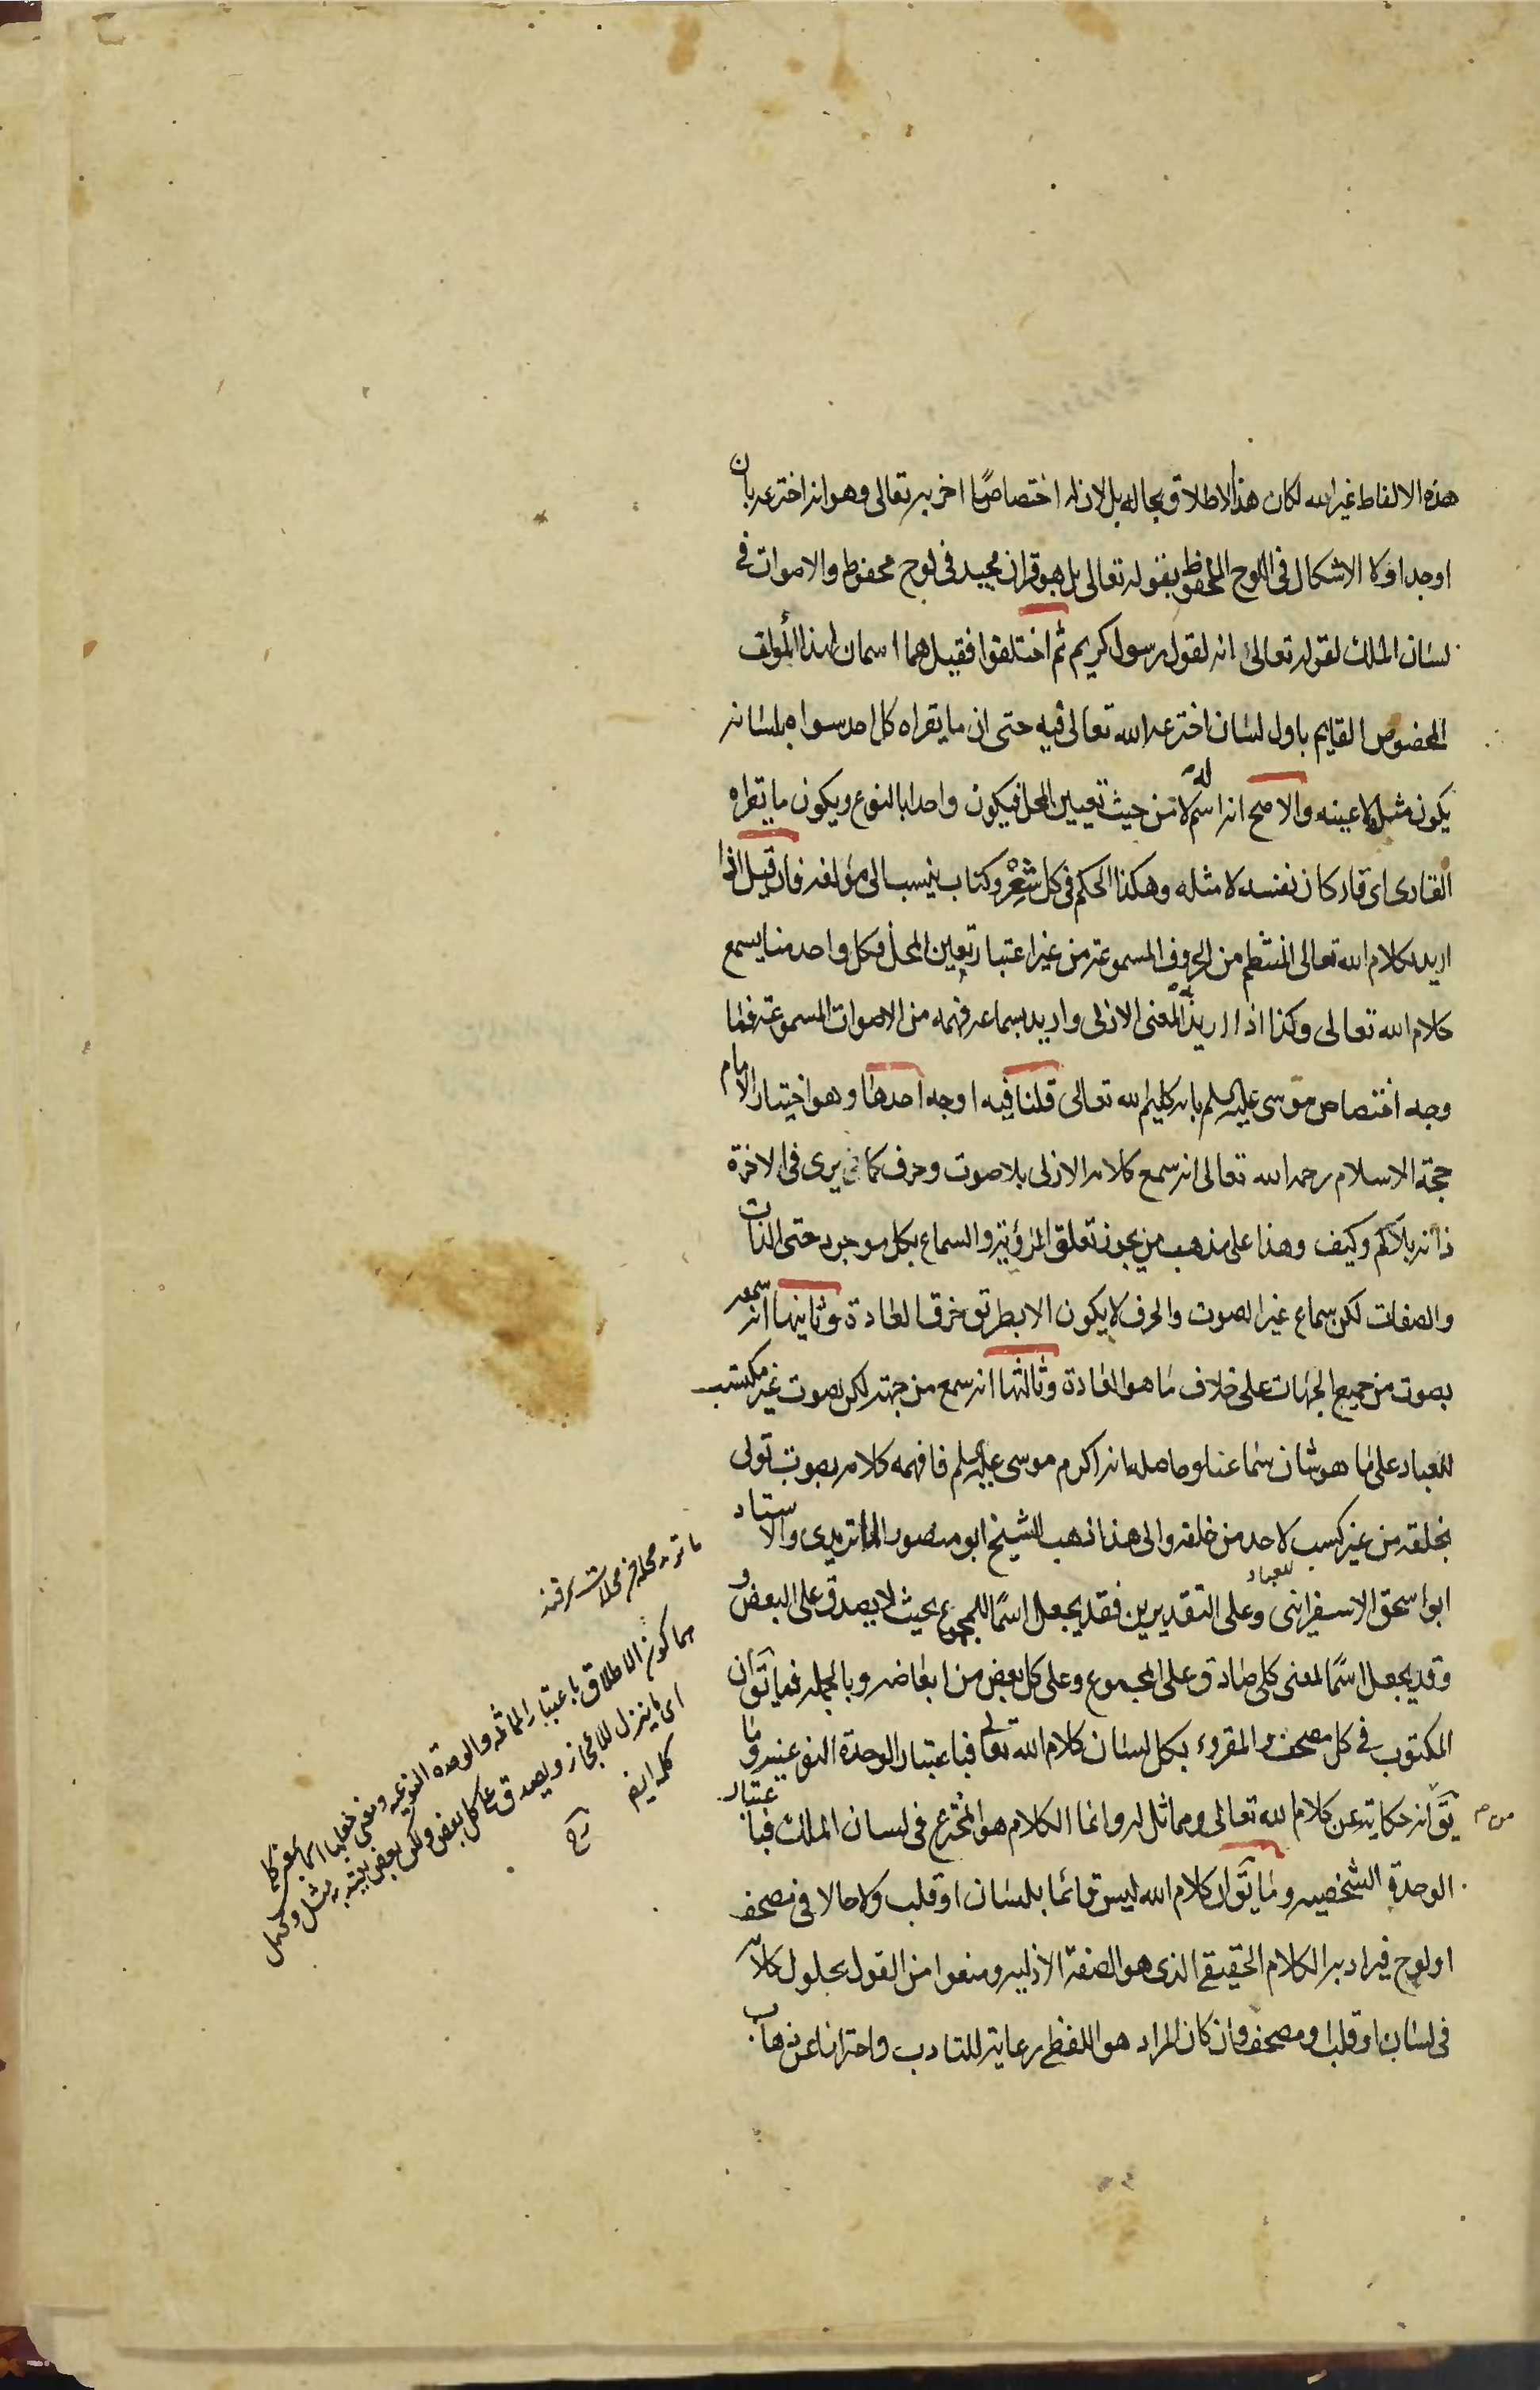 هذه الالفاظ غير الله لكان هذا الاطلاق بحاله بل لان له اختصاصًا اخر به تعالى وهو انه اخترعه بان
اوجد اولا الاشكال في اللوح المحفوظ بقوله تعالى بل هو قران مجيد في لوح محفوظ والاصوات في
لسان الملك لقوله تعالى انه لقول رسول كريم ثم اختلفوا فقيل هما اسمان لهذا المؤلف
المخصوص القايم باول لسان اخترعه الله تعالى فيه حتى ان ما يقراه كل احد سواه بلسانه
يكون مثله لا عينه والاصح انه اسم له لا من حيث تعيين المحل فيكون واحدا بالنوع ويكون ما يقراه
القارى اى قار كان نفسه لا مثله وهكذا الحكم في كل شعر وكتاب ينسب الى مؤلفه فان قيل اذا
اريد بكلام الله تعالى المنتظم من الحروف المسموعة من غير اعتبار تعيين المحل فكل واحد منا يسمع
كلام الله تعالى وكذا اذا اريد به المعنى الازلى واريد بسماعه فهمه من الاصوات المسموعة فما
وجه اختصاص موسى عليه السلم بانه كليم الله تعالى قلنا فيه اوجه احدها وهو اختيار الامام
حجة الاسلام رحمه الله تعالى انه سمع كلامه الازلى بلا صوت وحرف كما يرى في الاخرة
ذاته بلا كم وكيف وهذا على مذهب من يجوز تعلق الرؤية والسماع بكل موجود حتى الذات
والصفات لكن سماع غير الصوت والحرف لا يكون الا بطريق خرق العادة وثانيها انه سمعه
بصوت من جميع الجهات على خلاف ما هو العادة وثالثها انه سمع من جهة لكن بصوت غير مكتسب
للعباد على ما هو شان سماعنا وحاصله انه اكرم موسى عليه السلم فافهمه كلامه بصوت تولى
بخلقه من غير كسب لاحد من خلقه والى هذا ذهب الشيخ ابو منصور الماتريدى والاستاد
ابو اسحق الاسفراينى وعلى التقديرين فقد يجعل اسمًا للمجموع بحيث لا يصدق على البعض و
للعباد
وقد يجعل اسمًا لمعنى كلى صادق على المجموع وعلى كل بعض من ابعاضه وبالجملة فما يق ان
المكتوب في كل مصحف والمقروء بكل لسان كلام الله تعالى فباعتبار الوحدة النوعية وما
يق انه حكاية عن كلام الله تعالى ومماثل له وانما الكلام هو المخترع في لسان الملك فباعتبار
الوحدة الشخصيه وما يق ان كلام الله ليس قائما بلسان او قلب ولا حالا في مصحف
او لوح فيراد به الكلام الحقيقى الذى هو الصفة الازليه ومنعوا من القول بحلول كلامه
في لسان او قلب او مصحف وان كان المراد هو اللفظى رعاية للتادب واحترازا عن ذهاب
ماتريد محلة من محلات سمرقند
هما كون الاطلاق باعتبار المماثلة والوحدة النوعيه
كله ايضا